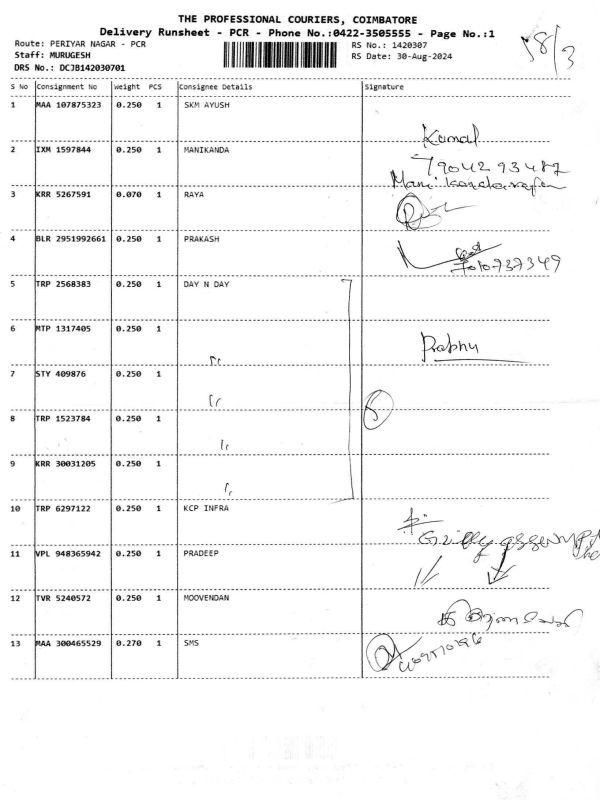 THE PROFESSIONAL COURIERS, COIMBATORE
Delivery Runsheet - PCR - Phone No.:0422-3505555 - Page No.:1
Route: PERIYAR NAGAR - PCR
RS No.: 1420307
Staff: MURUGESH
RS Date: 30-Aug-2024
DRS No.: DCJB142030701
S No Consignment No Weight PCS Consignee Details Signature
1 MAA 107875323 0.250 1 SKM AYUSH
Kamal
2 IXM 1597844 0.250 1 MANIKANDA
7904293487
3 KRR 5267591 0.070 1 RAYA
4 BLR 2951992661 0.250 1 PRAKASH
7010737349
5 TRP 2568383 0.250 1 DAY N DAY
6 MTP 1317405 0.250 1
Prabhu
7 STY 409876 0.250 1
5
8 TRP 1523784 0.250 1
9 KRR 30031205 0.250 1
10 TRP 6297122 0.250 1 KCP INFRA
11 VPL 948365942 0.250 1 PRADEEP
12 TVR 5240572 0.250 1 MOOVENDAN
13 MAA 300465529 0.270 1 SMS